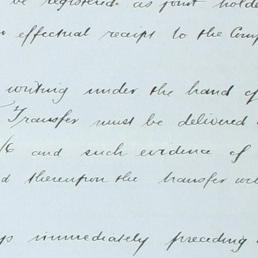 be registered as joint holde
effectual receipt to the Comp
writing under the hand of
Transfer must be delivered
/6 and such evidence of
d thereupon the transfer wi
immediately preceding